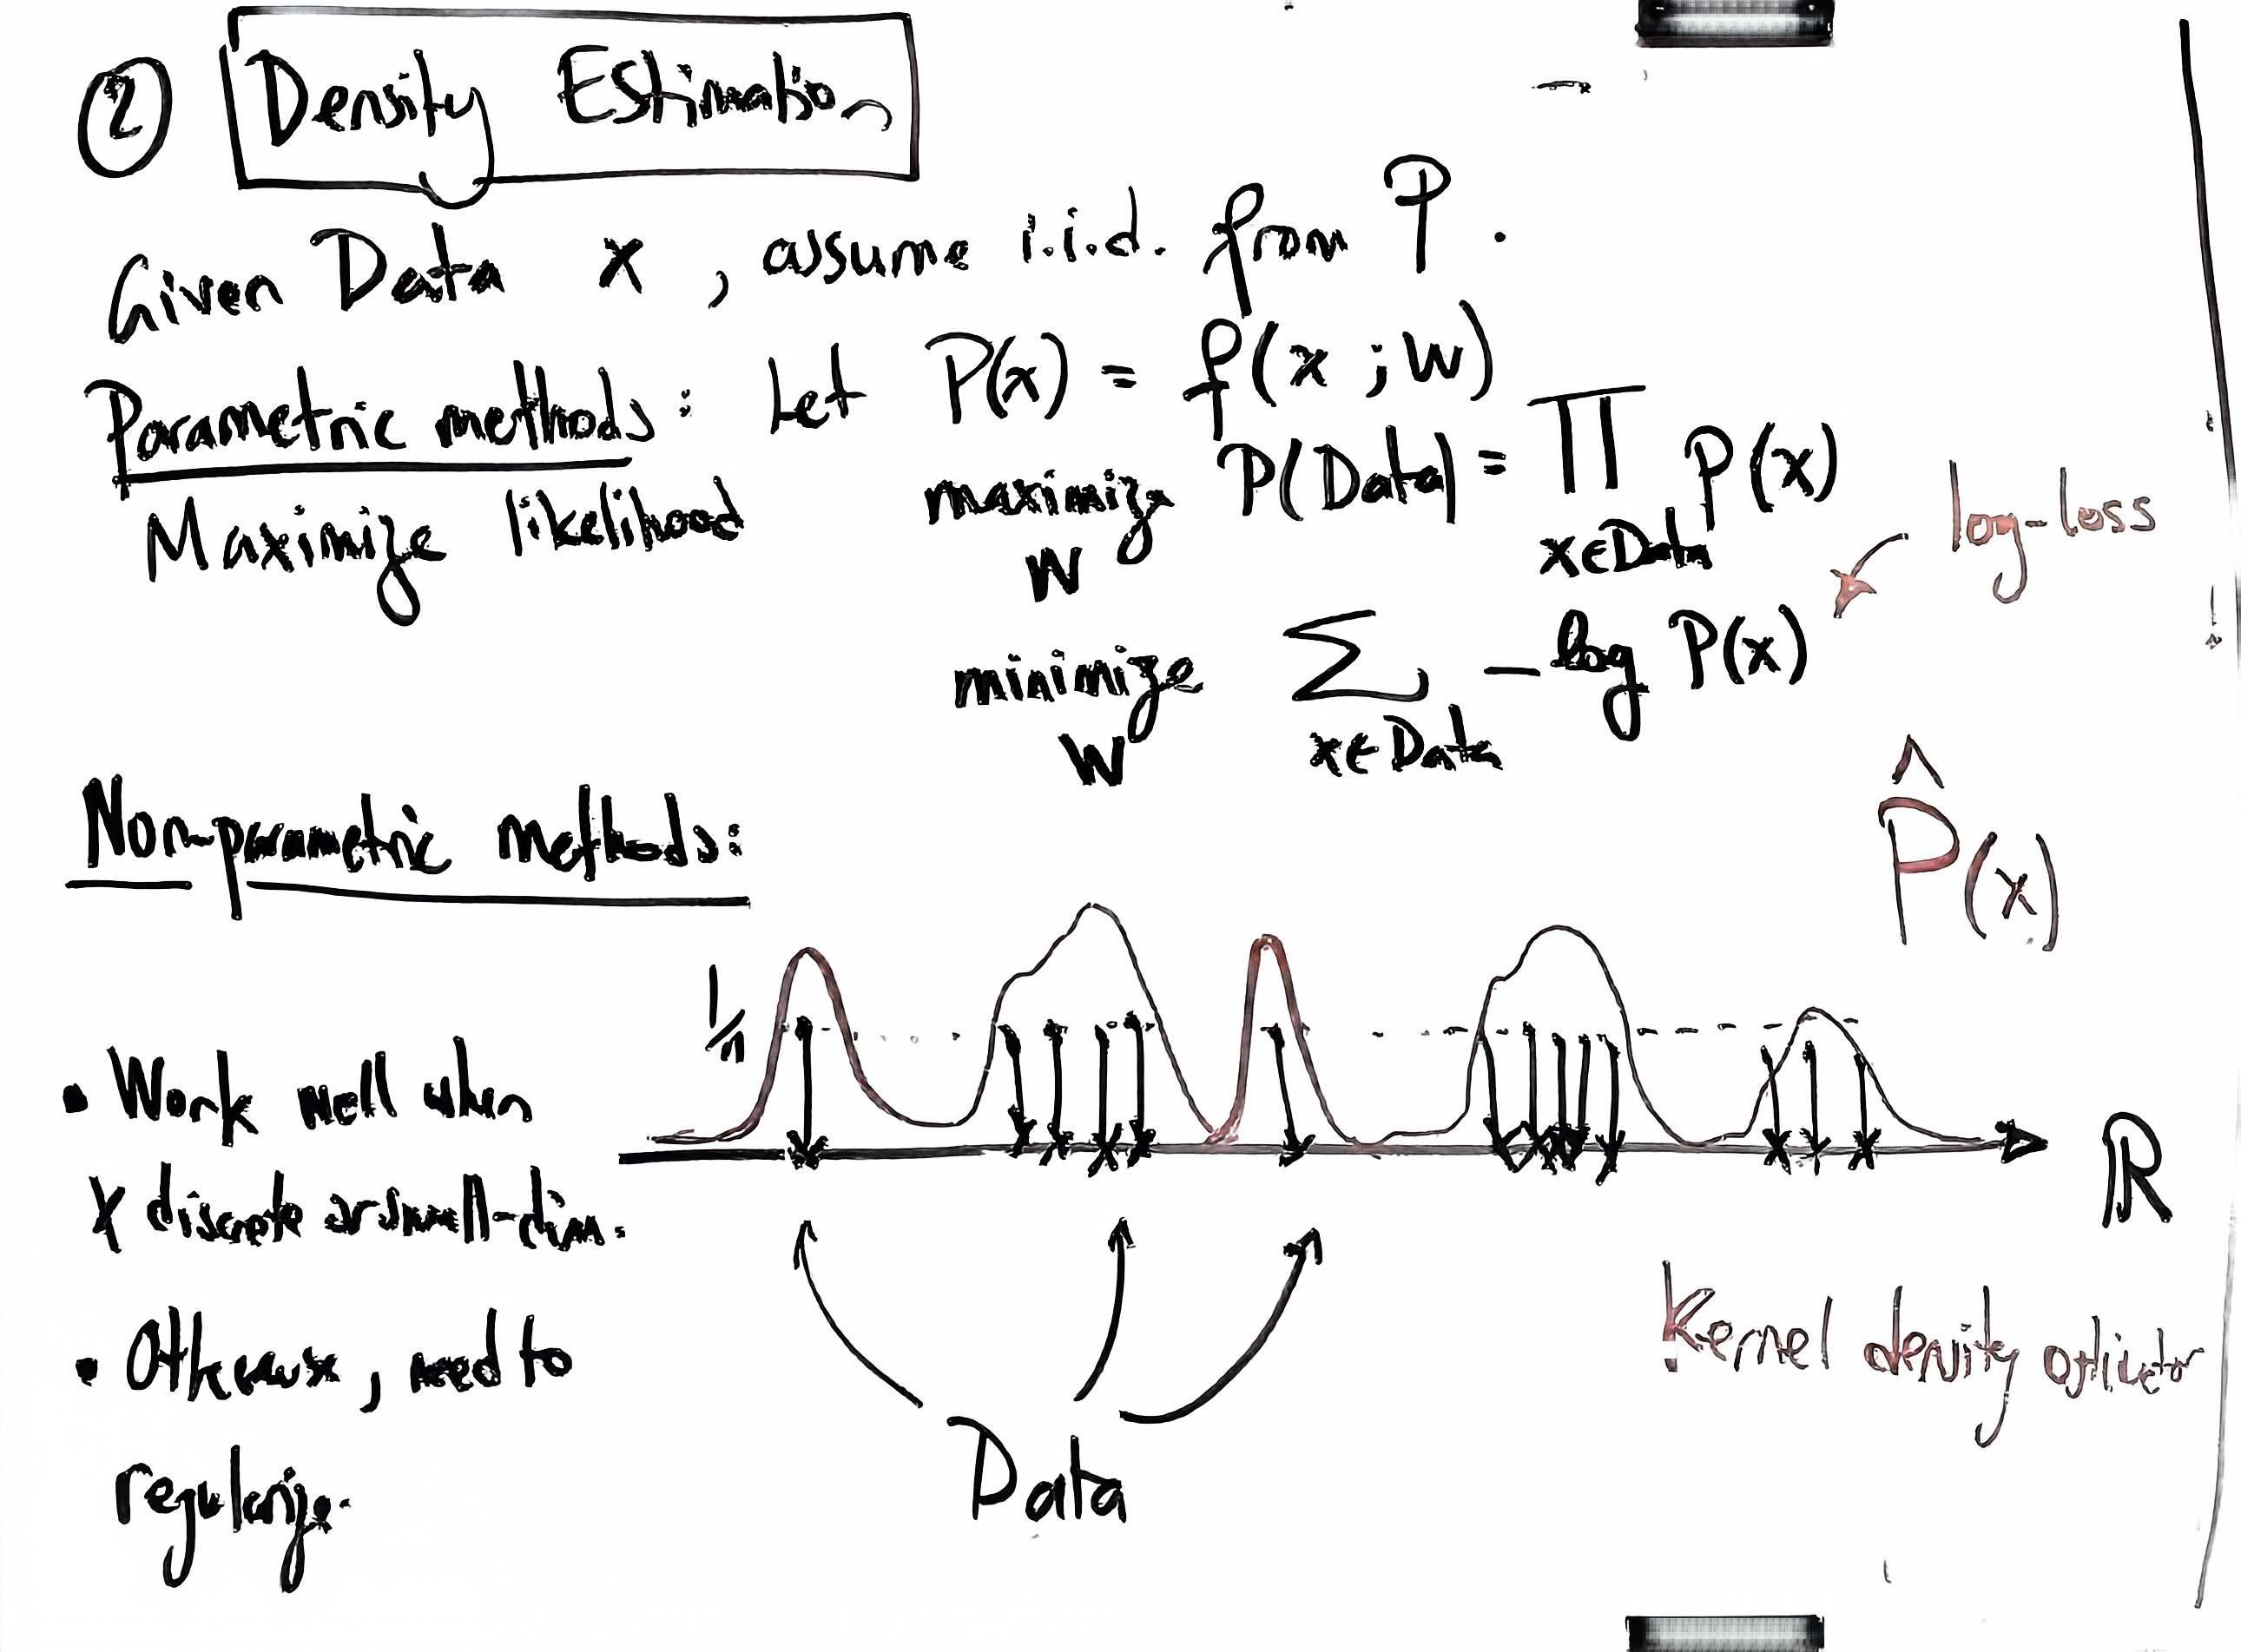 ② Density Estimation
Given Data x, assume i.i.d. from P.
Parametric methods: Let P(x) = f(x ; W)
Maximize likelihood maximize P(Data) = ∏ P(x)
W x∈Data
log-loss
minimize ∑ -log P(x)
W x∈Data
Non-parametric methods:
P̂(x)
1/n
• Work well when
X discrete or small-dim.
ℝ
• Otherwise, need to
regularize.
Kernel density
Data